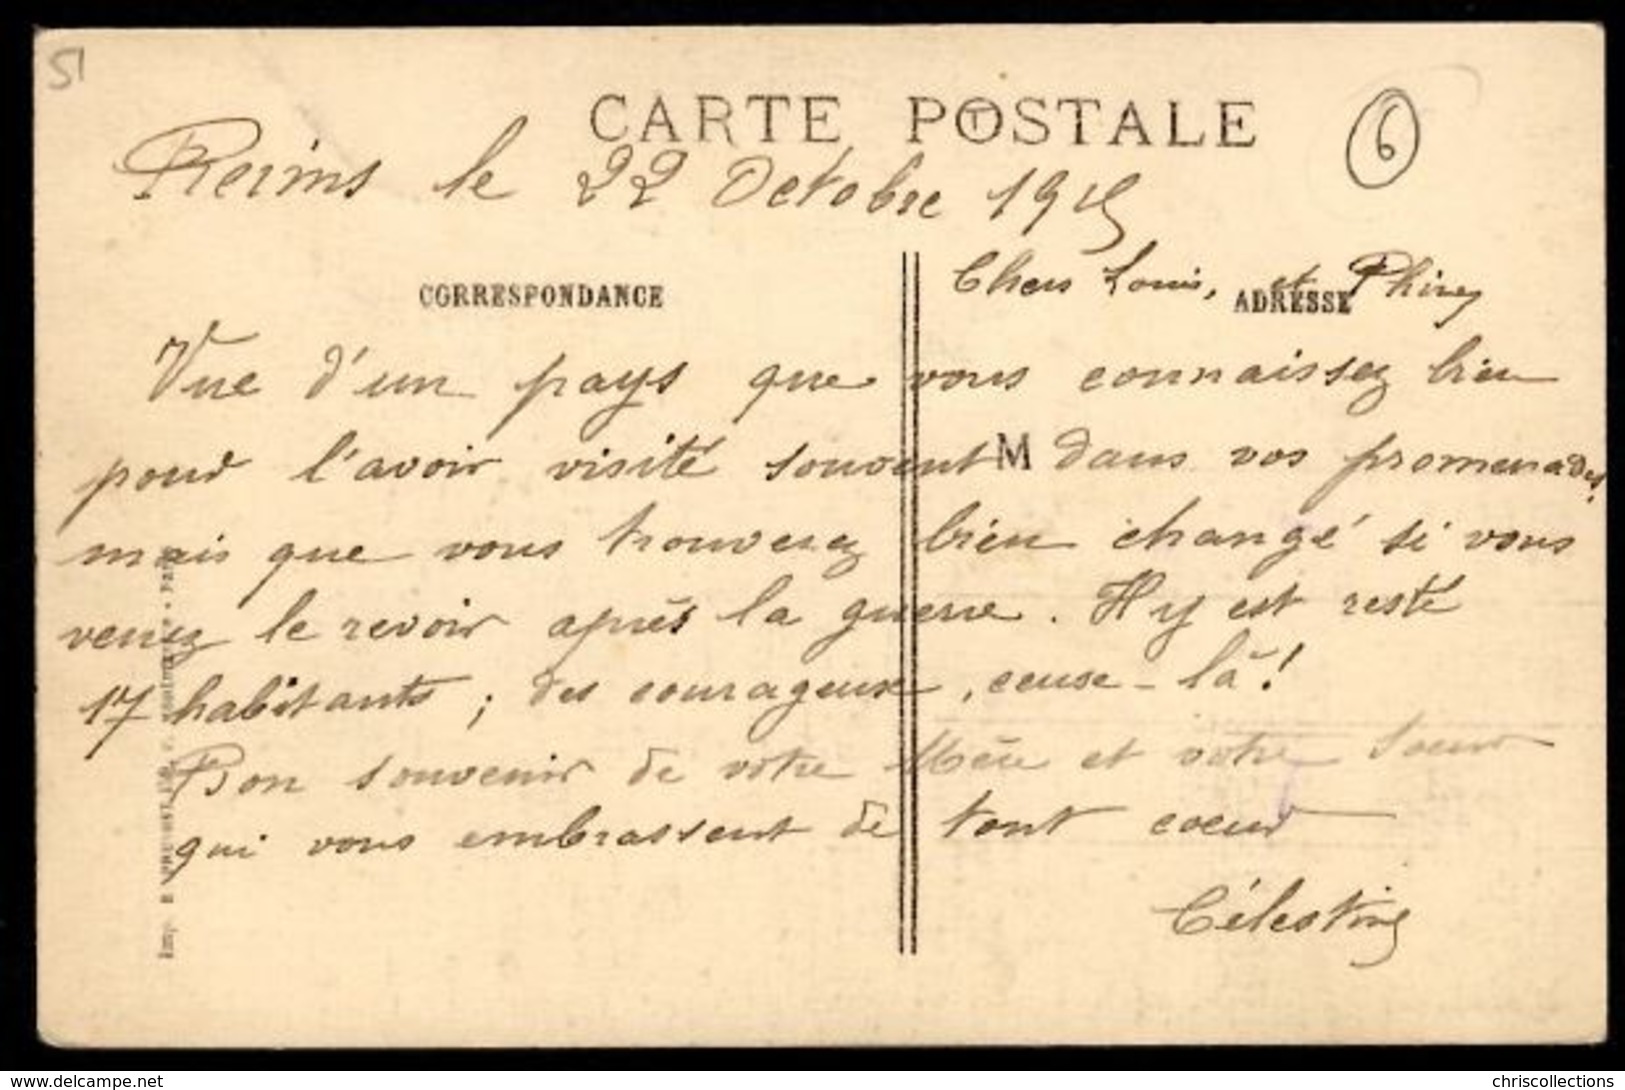 51
CARTE POSTALE
6
Reims le 22 Octobre 1915
CORRESPONDANCE
ADRESSE
Chers Louis, et
Vue d'un pays que vous connaissez bien
pour l'avoir visité souvent dans vos promenades,
M
mais que vous trouverez bien changé si vous
venez le revoir après la guerre. Il y est resté
17 habitants ; des courageux, ceuse-là !
Bon souvenir de votre Mère et votre Soeur
qui vous embrassent de tout coeur
Célestine
Imp.
www.delcampe.net
chriscollections